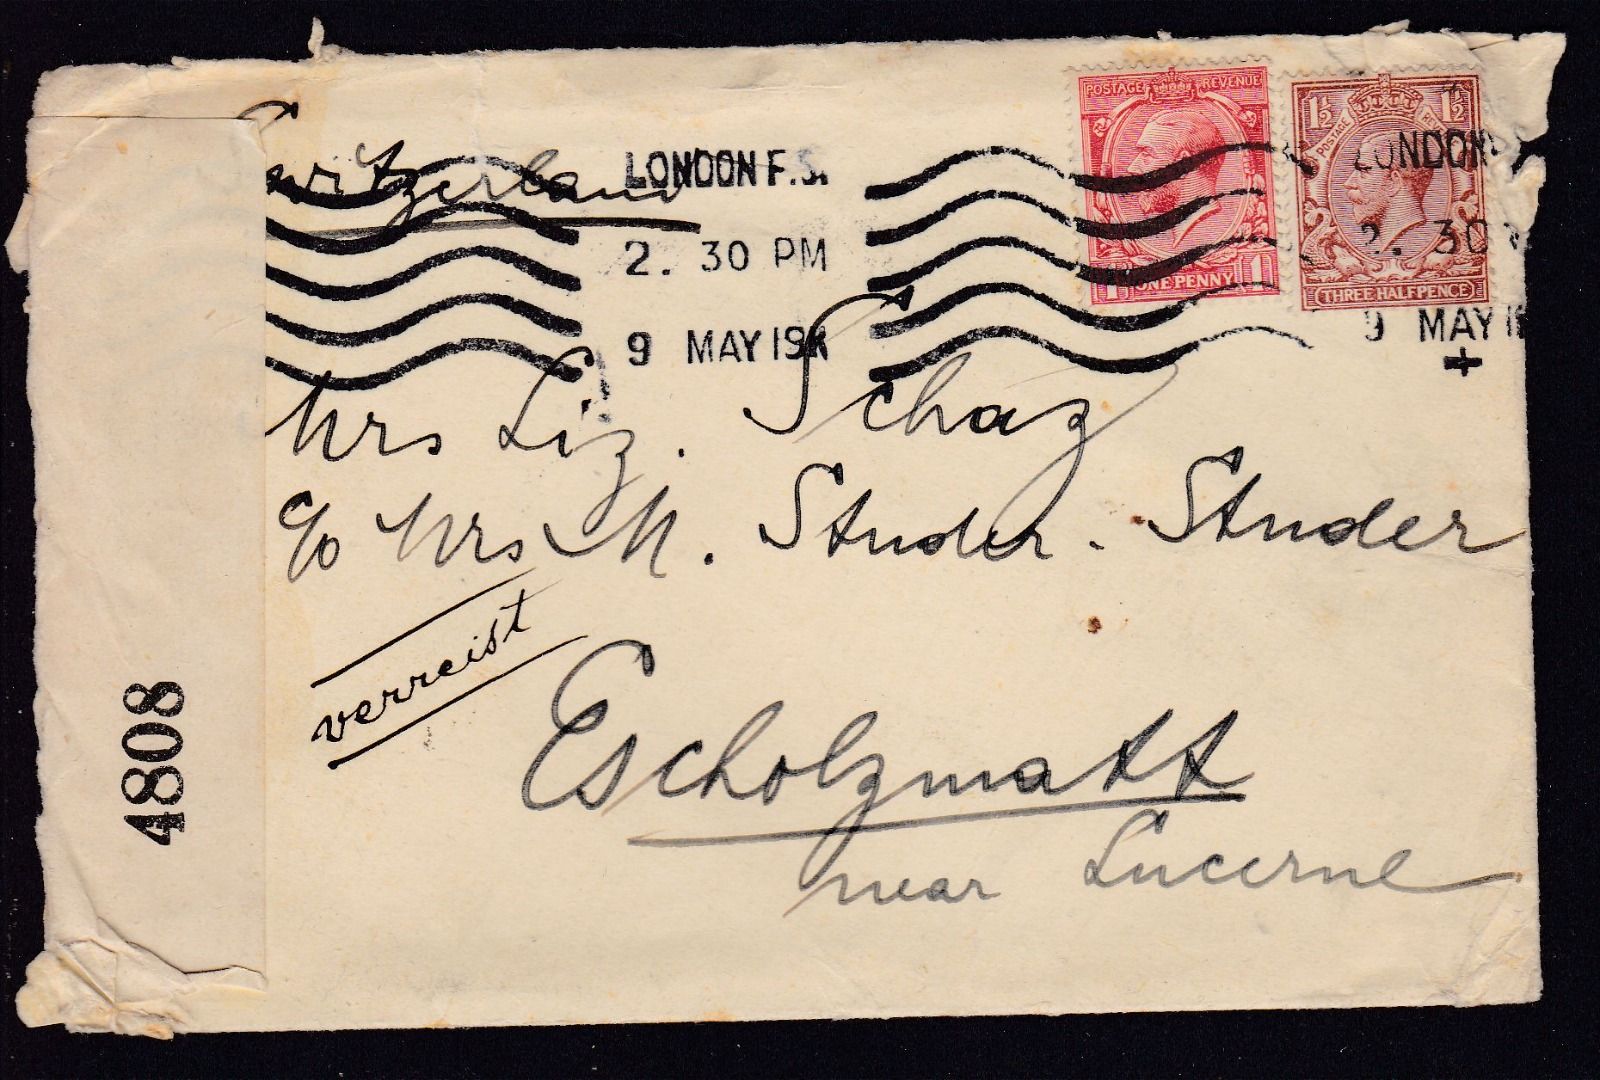 Switzerland
LONDON F.S.
2. 30 PM
9 MAY 19
POSTAGE REVENUE
1 ONE PENNY 1
1½ 1½
POSTAGE
THREE HALFPENCE
LONDON
2. 30
9 MAY 1
Mrs Liz. Schaz
c/o Mrs M. Studer - Studer
verreist
Escholzmatt
near Lucerne
4808